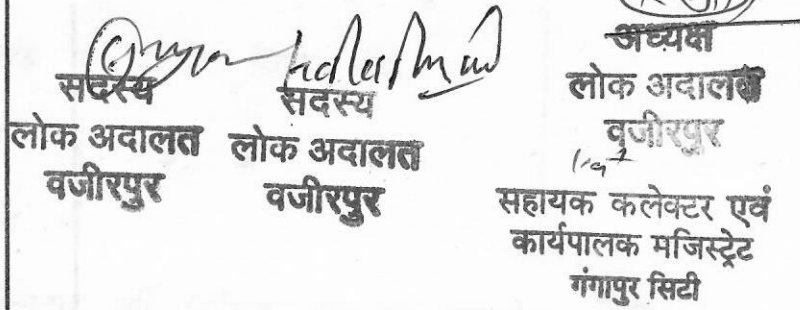 सदस्य
लोक अदालत
वजीरपुर
सदस्य
लोक अदालत
वजीरपुर
अध्यक्ष
लोक अदालत
वजीरपुर
सहायक कलेक्टर एवं
कार्यपालक मजिस्ट्रेट
गंगापुर सिटी